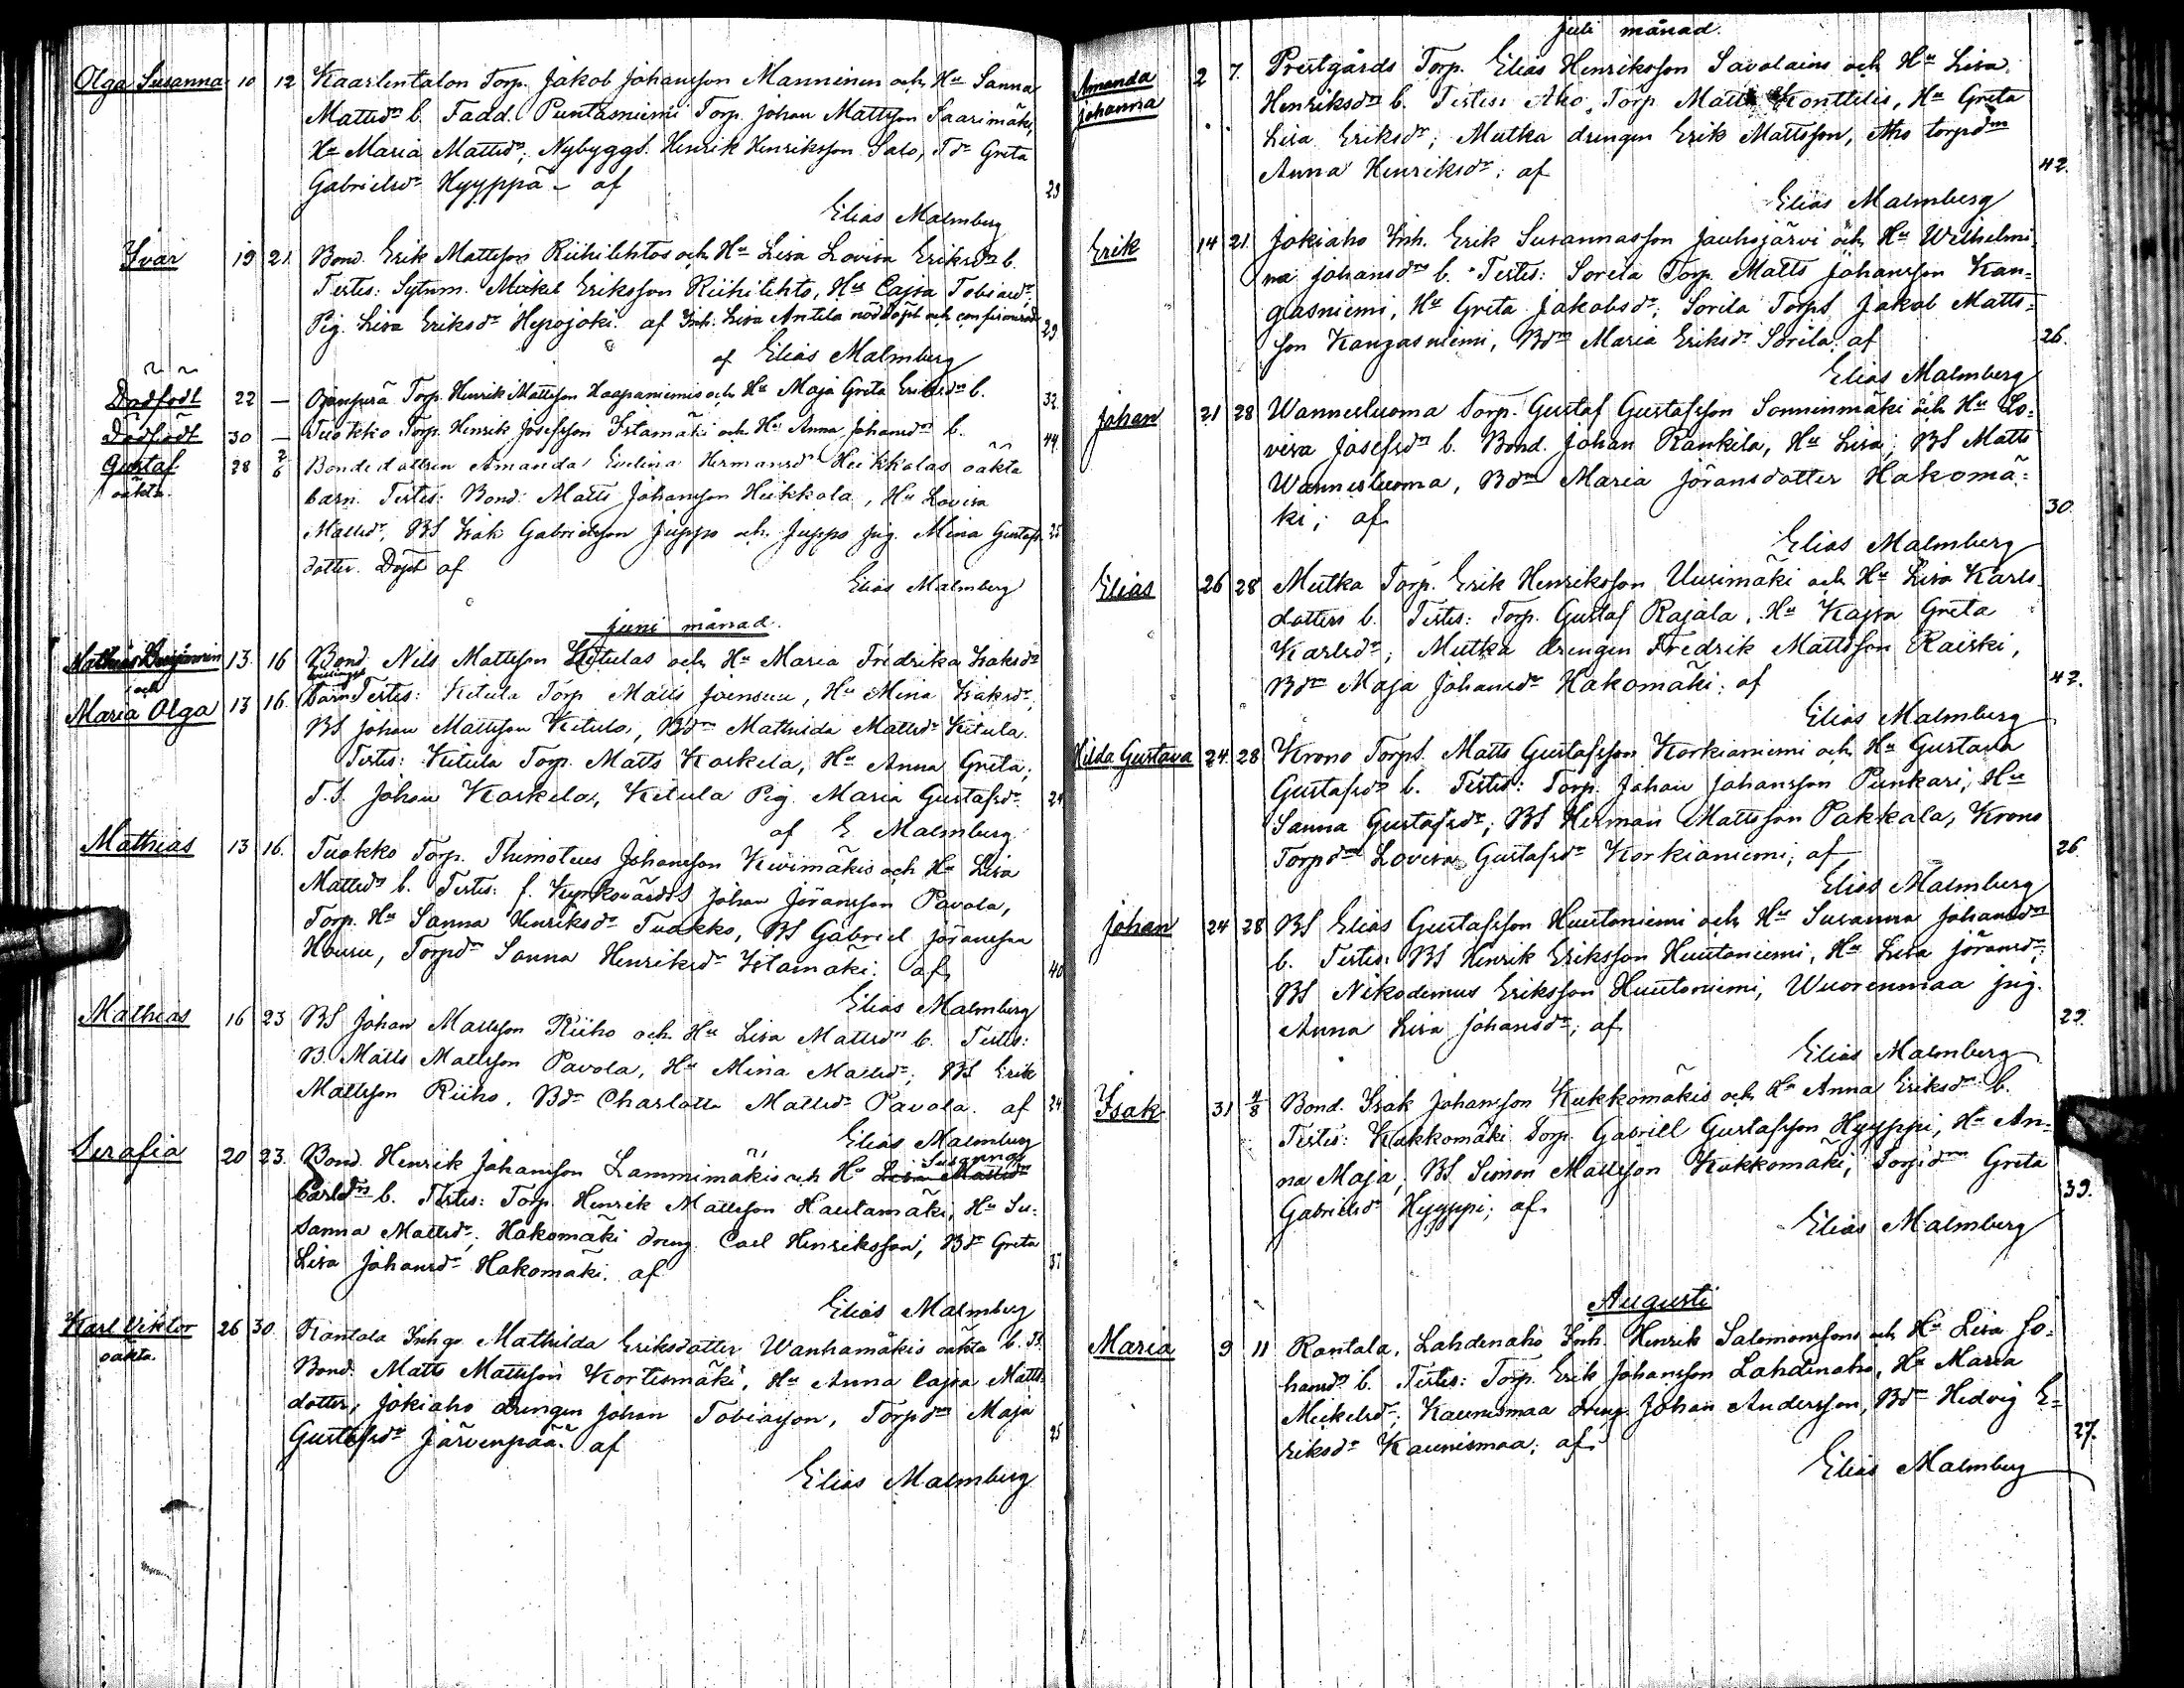 Olga Susanna 10 12 Kaarlentalon Torp. Jakob Johansson Manninen och Hu Sanna
Mattsdrs b. Fadd. Puntasniemi Torp. Johan Mattsson Saarimäki,
Hu Maria Mattsdr; Nybyggs. Henrik Henriksson Salo, Tdr Greta
Gabrielsdr Hyyppä - af 23
Elias Malmberg
Ivar 19 21. Bond. Erik Mattsson Riihilehtos och Hu Lisa Lovisa Eriksdrs b.
Testes: Sytnm. Mickel Eriksson Riihilehto, Hu Cajsa Tobiasdr,
Pig. Lisa Eriksdr Hepojoki. af Inh. Lisa Antila nöddöpt och confirmerad 29
af Elias Malmberg
Dödfödt 22 — Torp. Henrik Mattsson Haapaniemis och Hu Maja Greta Eriksdrs b. 32.
Dödfödt 30 — Tuokko Torp. Henrik Josefsson Istamäki och Hu Anna Johansdrs b. 44.
Gustaf 28 2/6 Bondedottren Amanda Evelina Hermansdr Heikkolas oäkta
oäkta. barn. Testes: Bond. Matts Johansson Heikkola, Hu Lovisa
Mattsdr, BS Isak Gabrielsson Juppo och Juppo pig. Mina Gustafs 25
dotter. Döpt af
Elias Malmberg
juni månad.
Mathias Benjamin 13. 16 Bond Nils Mattsson Ketulas och Hu Maria Fredrika Isaksdrs
och tvillinge
Maria Olga 13 16. barn Testes: Ketula Torp Matts Joensuu, Hu Mina Isaksdr,
BS Johan Mattsson Ketula, Bdn Mathilda Mattsdr Ketula.
Testes: Ketula Torp. Matts Koskela, Hu Anna Greta;
T.S. Johan Koskela, Ketula Pig. Maria Gustafsdr 24
af E. Malmberg
Mathias 13 16. Tuokko Torp. Thimoteus Johansson Kivimäkis och Hu Lisa
Mattsdrs b. Testes: f. Johan Jöransson Pavola,
Torp. Hu Sanna Henriksdr Tuokko, BS Gabriel Jöransson
Housu, Torpdr Sanna Henriksdr Istamäki. af 40
Elias Malmberg
Mathias 16 23 BS Johan Mattsson Riiho och Hu Lisa Mattsdrs b. Testes:
B. Matts Mattsson Pavola, Hu Mina Mattsdr; BS Erik
Mattsson Riiho, Bdr Charlotta Mattsdr Pavola. af 24
Elias Malmberg
Serafia 20 23. Bond. Henrik Johansson Lammimäkis och Hu Lisa Mattsdr Susannas
Carlsdrs b. Testes: Torp. Henrik Mattsson Hautamäki, Hu Su-
sanna Mattsdr; Hakomäki dreng. Carl Henriksson, Bdr Greta
Lisa Johansdr Hakomäki. af 37
Elias Malmberg
Karl Viktor 26 30. Rantala Inhga Mathilda Eriksdotter Wanhamäkis oäkta b. Ts.
oäkta. Bond. Matts Mattsson Kortesmäki, Hu Anna Cajsa Matts-
dotter, Jokiaho drengen Johan Tobiasson, Torpdn Maja
Gustafsdr Järvenpää. af 25
Elias Malmberg
juli månad.
Amanda 2 7. Prestgårds Torp. Elias Henriksson Savolains och Hu Lisa
Johanna Henriksdrs b. Testes: Aho, Torp Matts Konttelis, Hu Greta
Lisa Eriksdr; Mutka drengen Erik Mattsson, Aho torpdm
Anna Henriksdr; af 42.
Elias Malmberg
Erik 14 21. Jokiaho Inh. Erik Susannasson Jauhojärvi och Hu Wilhelmi-
na Johansdrs b. Testes: Sorila Torp. Matts Johansson Kan-
gasniemi, Hu Greta Jakobsdr; Sorila Torps Jakob Matts-
son Kangasniemi, Bdm Maria Eriksdr Sorila; af 26.
Elias Malmberg
Johan 21 28 Wannesluoma Torp. Gustaf Gustafsson Sonninmäki och Hu Lo-
visa Josefsdrs b. Bond. Johan Rankila, Hu Lisa; BS Matts
Wannesluoma, Bdm Maria Jöransdotter Hakomä-
ki; af 30.
Elias Malmberg
Elias 26 28 Mutka Torp. Erik Henriksson Uusimäki och Hu Lisa Karls-
dotters b. Testes: Torp. Gustaf Rajala, Hu Kajsa Greta
Karlsdr; Mutka drengen Fredrik Mattsson Raiski,
Bdm Maja Johansdr Hakomäki; af 42.
Elias Malmberg
Hilda Gustava 24. 28 Krono Torps. Matts Gustafsson Korkianiemi och Hu Gustava
Gustafsdrs b. Testes: Torp. Johan Johansson Punkari, Hu
Sanna Gustafsdr; BS Herman Mattsson Pakkala, Krono
Torpdm Lovisa Gustafsdr Korkianiemi; af 26.
Elias Malmberg
Johan 24 28 BS Elias Gustafsson Huutoniemi och Hu Susanna Johansdrs
b. Testes: BS Henrik Eriksson Huutoniemi, Hu Lisa Jöransdr;
BS Nikodemus Eriksson Huutoniemi, Wuorenmaa pig.
Anna Lisa Johansdr; af 29.
Elias Malmberg
Isak 31 4/8 Bond. Isak Johansson Kukkomäkis och Hu Anna Eriksdrs b.
Testes: Kukkomäki Torp. Gabriel Gustafsson Hyyppi, Hu An-
na Maja; BS Simon Mattsson Kukkomäki, Torpdm Greta
Gabrielsdr Hyyppi; af 39.
Elias Malmberg
Augusti
Maria 9 11 Rantala, Lahdenaho Inh. Henrik Salomonssons och Hu Lisa Jo-
hansdrs b. Testes: Torp. Erik Johansson Lahdenaho, Hu Maria
Mickelsdr; Kaunismaa dreng. Johan Andersson, Bdm Hedvig E-
riksdr Kaunismaa; af 27.
Elias Malmberg